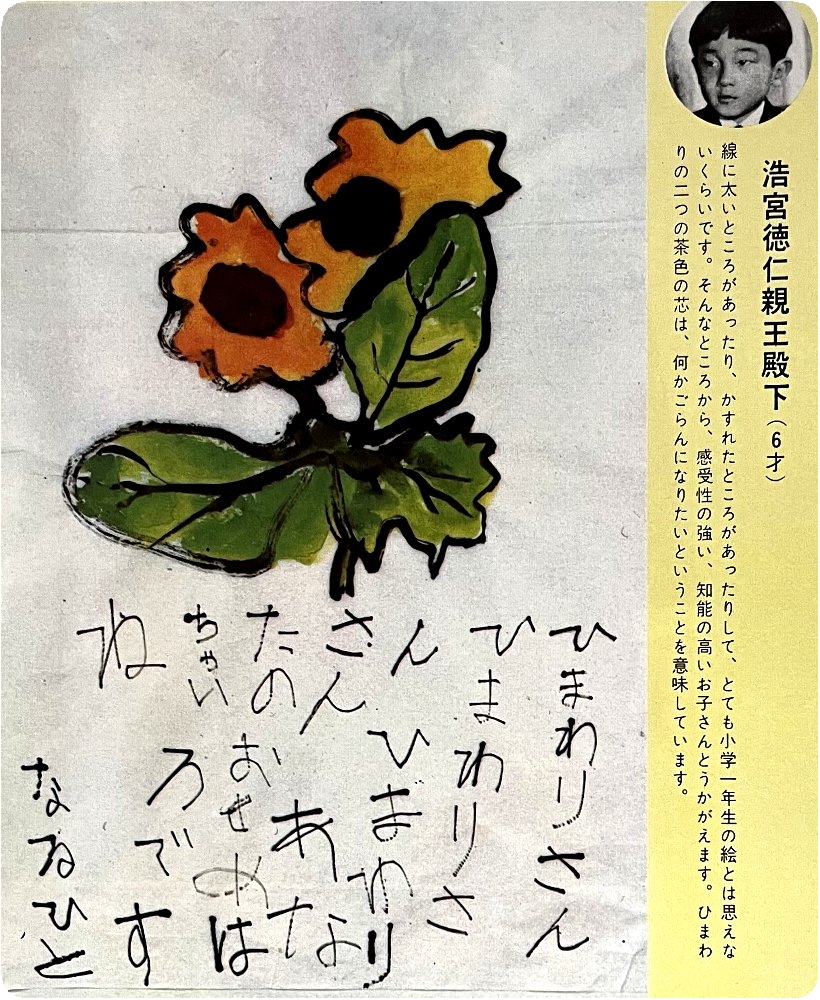 浩宮徳仁親王殿下（6才）
線に太いところがあったり、かすれたところがあったりして、とても小学一年生の絵とは思えな
いくらいです。そんなところから、感受性の強い、知能の高いお子さんとうかがえます。ひまわ
りの二つの茶色の芯は、何かごらんになりたいということを意味しています。
ひまわりさん
ひまわりさ
ん ひまわり
さん あな
たの おめめは
ちゃい ろです
ね
なるひと